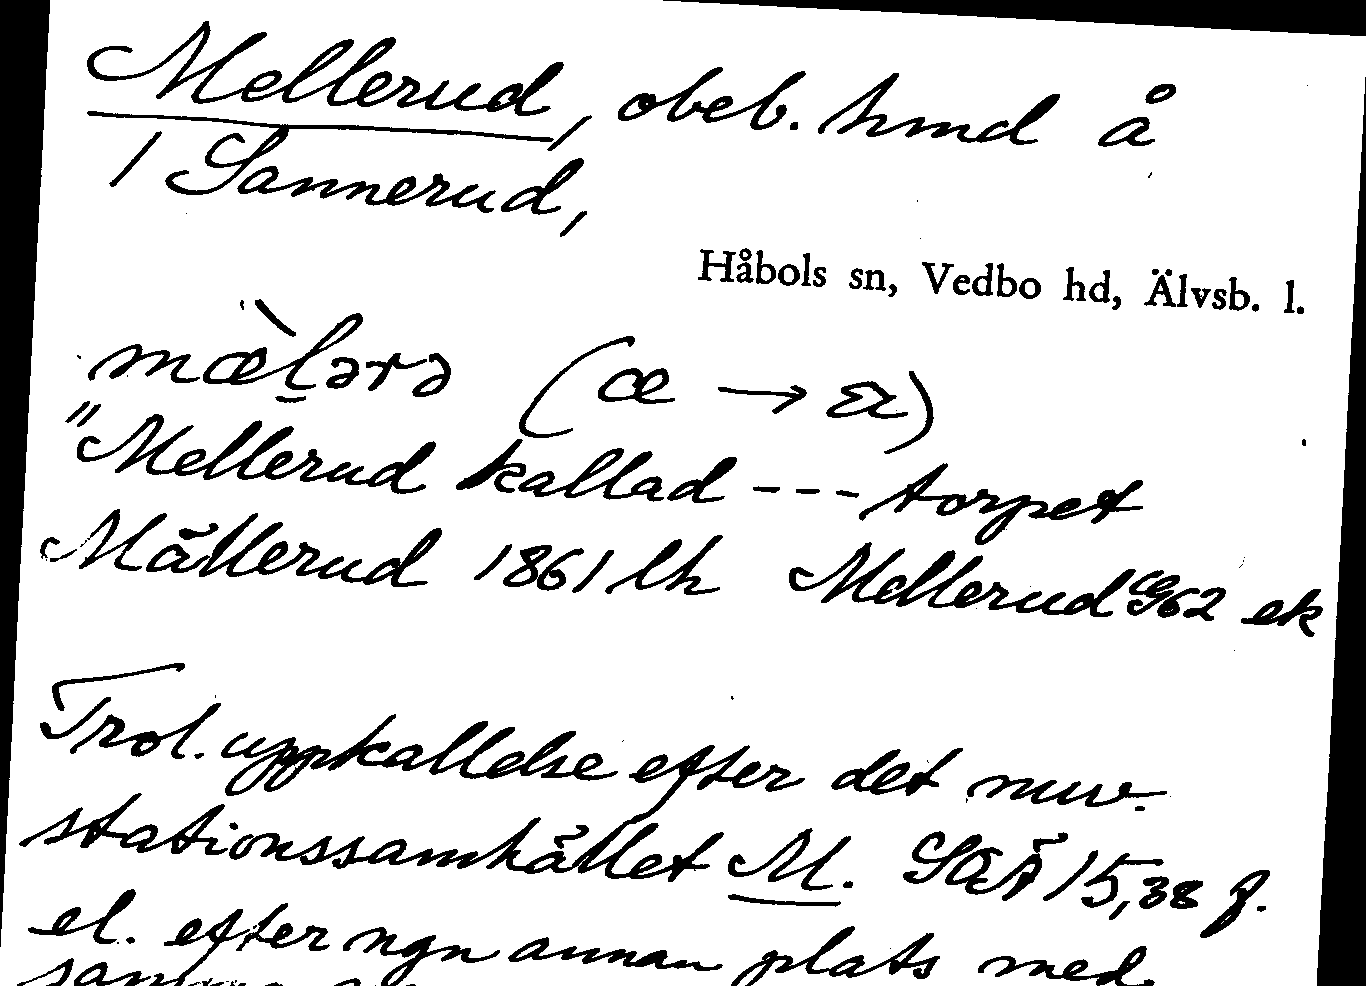 Mellerud, obeb. hmd å
1 Sannerud,
Håbols sn, Vedbo hd, Älvsb. l.
mæ̀l̠ərə (æ → a)
"Mellerud kallad --- torpet
Mällerud 1861 lh Mellerud G62 ek
Trol. uppkallelse efter det nuv.
stationssamhället M. SOÄ 15,38 f.
el. efter ngn annan plats med
samma